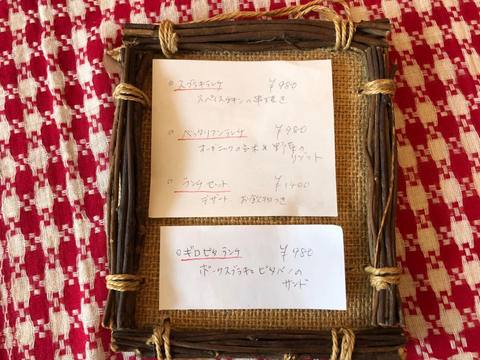 ○ スブラキランチ ¥980
スパイスチキンの串焼き
○ ベジタリアンランチ ¥980
オーガニックの玄米と野菜の
リゾット
○ ランチセット ¥1400
デザート お飲物つき
○ ギロピタランチ ¥980
ポークスブラキと ピタパンの
サンド